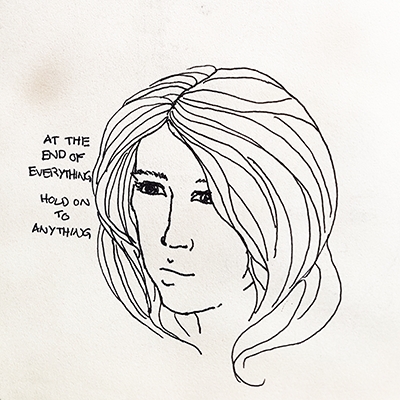 AT THE
END OF
EVERYTHING
HOLD ON
TO
ANYTHING